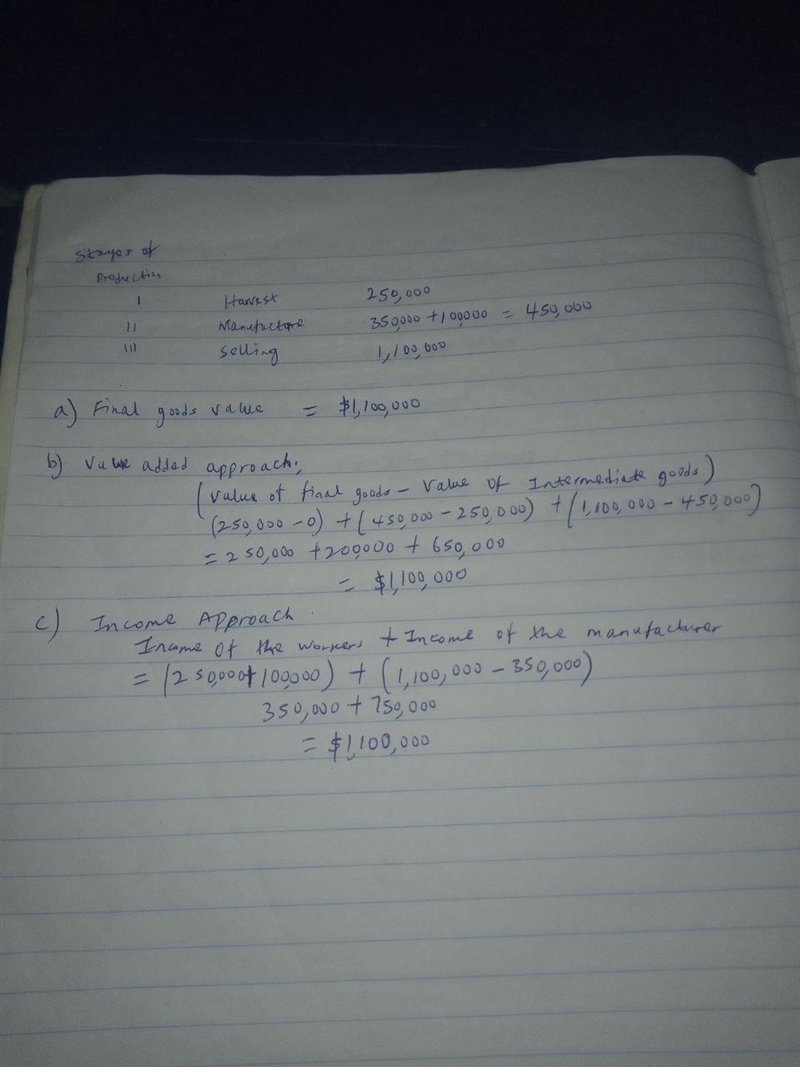 Stages of
Production
I Harvest 250,000
II Manufacture 350,000 + 100,000 = 450,000
III Selling 1,100,000
a) Final goods value = $1,100,000
b) Value added approach;
(Value of final goods - Value of Intermediate goods)
(250,000 - 0) + (450,000 - 250,000) + (1,100,000 - 450,000)
= 250,000 + 200,000 + 650,000
= $1,100,000
c) Income Approach.
Income of the workers + Income of the manufacturer
= (250,000 + 100,000) + (1,100,000 - 350,000)
350,000 + 750,000
= $1,100,000